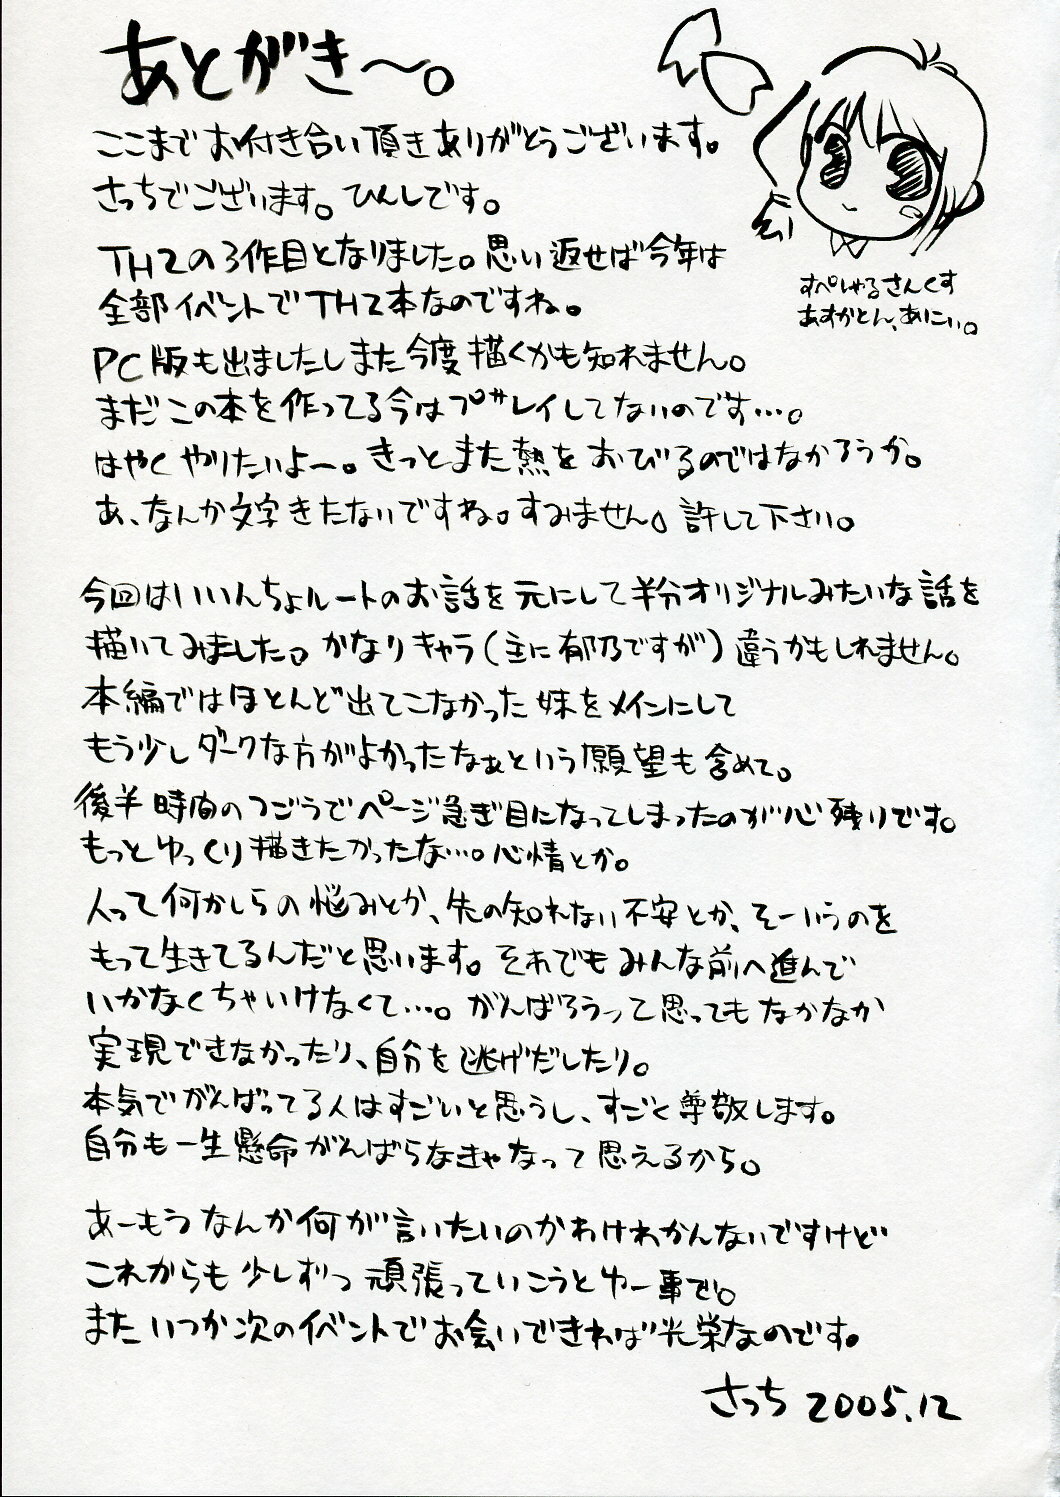 あとがき～。
ここまでお付き合い頂きありがとうございます。
さっちでございます。ひんしです。
TH2の3作目となりました。思い返せば今年は
全部イベントでTH2本なのですね。
PC版も出ましたしまた今度描くかも知れません。
まだこの本を作ってる今はプレイしてないのです…。
はやくやりたいよー。きっとまた熱をおびるのではなかろうか。
あ、なんか文字きたないですね。すみません。許して下さい。
すぺしゃるさんくす
あすかとん、あにぃ。
今回はいいんちょルートのお話を元にして半分オリジナルみたいな話を
描いてみました。かなりキャラ(主に郁乃ですが)違うかもしれません。
本編ではほとんど出てこなかった妹をメインにして
もう少しダークな方がよかったなぁという願望も含めて。
後半時間のつごうでページ急ぎ目になってしまったのが心残りです。
もっとゆっくり描きたかったな…。心情とか。
人って何かしらの悩みとか、先の知れない不安とか、そーいうのを
もって生きてるんだと思います。それでもみんな前へ進んで
いかなくちゃいけなくて…。がんばろうって思ってもなかなか
実現できなかったり、自分を逃げだしたり。
本気でがんばってる人はすごいと思うし、すごく尊敬します。
自分も一生懸命がんばらなきゃなって思えるから。
あーもうなんか何が言いたいのかわけわかんないですけど
これからも少しずつ頑張っていこうとゆー事で。
またいつか次のイベントでお会いできれば光栄なのです。
さっち 2005.12